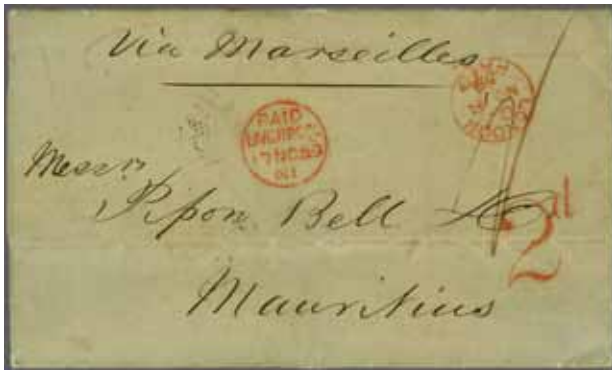 Via Marseilles
PAID
LIVERPOOL
Messrs
Pipon Bell & Co
2d
Mauritius